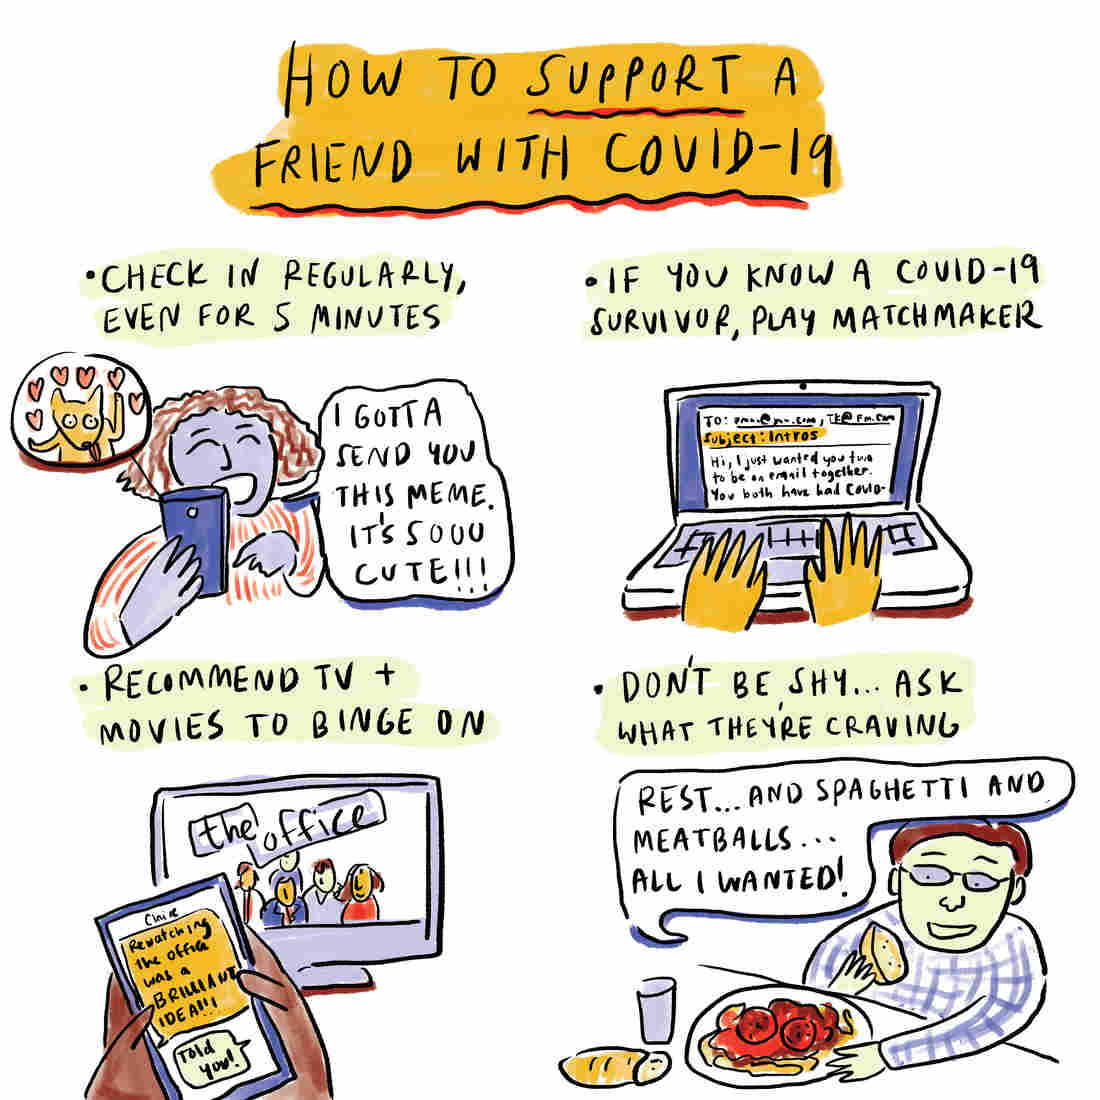 HOW TO SUPPORT A
FRIEND WITH COVID-19
• CHECK IN REGULARLY,
EVEN FOR 5 MINUTES
I GOTTA
SEND YOU
THIS MEME.
IT'S SOOO
CUTE!!!
• IF YOU KNOW A COVID-19
SURVIVOR, PLAY MATCHMAKER
TO:
Subject: Intros
Hi, I just wanted you two
to be on email together.
You both have had COVID-
• RECOMMEND TV +
MOVIES TO BINGE ON
the office
Rewatching
the office
was a
BRILLIANT
IDEA!!!
Told
you!
• DON'T BE SHY... ASK
WHAT THEY'RE CRAVING
REST... AND SPAGHETTI AND
MEATBALLS...
ALL I WANTED!